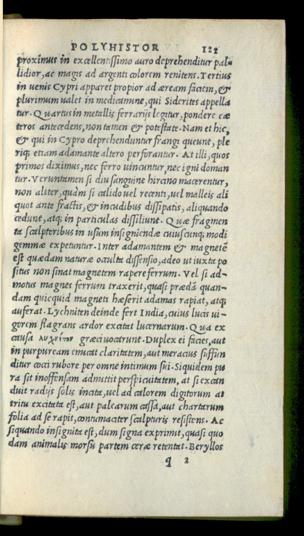 POLYHISTOR 112
proximus in excellentissimo auro deprehenditur pal-
lidior, ac magis ad argenti colorem renitens. Tertius
in uenis Cypri apparet propior ad æream faciem, &
plurimum ualet in medicamine, qui Siderites appella
tur. Quartus in metallis ferrarijs legitur, pondere cæ
teros antecedens, non tamen & potestate. Nam et hic,
& qui in Cypro deprehenduntur frangi queunt, ple
riq; etiam adamante altero perforantur. At illi, quos
primos diximus, nec ferro uincuntur, nec igni doman
tur. Veruntamen si diu sanguine hircino macerentur,
non aliter, quàm si calido uel recenti, uel malleis ali
quot ante fractis, & incudibus dissipatis, aliquando
cedunt, atq; in particulas dissiliunt. Quæ fragmen
ta scalptoribus in usum insigniendæ cuiuscunq; modi
gemmæ expetuntur. Inter adamantem & magnetē
est quædam naturæ occulta dissensio, adeo ut iuxta po
situs non sinat magnetem rapere ferrum. Vel si ad-
motus magnes ferrum traxerit, quasi prædā quan-
dam quicquid magneti hæserit adamas rapiat, atq;
auferat. Lychniten deinde fert India, cuius lucis ui-
gorem flagrans ardor excitat lucernarum. Qua ex
causa λυχνίτην græci uocarunt. Duplex ei facies, aut
in purpuream emicat claritatem, aut meracius suffun
ditur cocci rubore per omne intimum sui. Siquidem pu
ra sit inoffensam admittit perspicuitatem, at si excan
duit radijs solis incita, uel ad calorem digitorum at
tritu excitata est, aut palearum cassa, aut chartarum
folia ad se rapit, contumaciter scalpturis resistens. Ac
siquando insignita est, dum signa exprimit, quasi quo
dam animalis morsu partem ceræ retentat. Beryllos
q 2